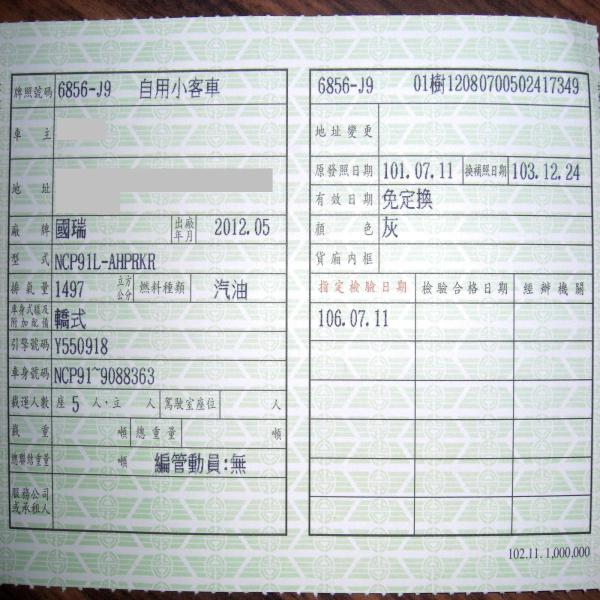 牌照號碼 6856-J9 自用小客車
車主
地址
廠牌 國瑞 出廠年月 2012.05
型式 NCP91L-AHPRKR
排氣量 1497 立方公分 燃料種類 汽油
車身式樣及附加配備 轎式
引擎號碼 Y550918
車身號碼 NCP91~9088363
載運人數 座 5 人·立 人 駕駛室座位 人
載重 噸 總重量 噸
總聯結重量 噸 編管動員:無
服務公司或承租人
6856-J9 01樹12080700502417349
地址變更
原發照日期 101.07.11 換補照日期 103.12.24
有效日期 免定換
顏色 灰
貨廂內框
指定檢驗日期 檢驗合格日期 經辦機關
106.07.11
102.11.1,000,000